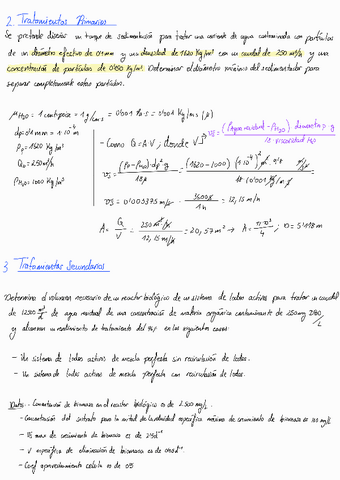 2. Tratamientos Primarios
Se pretende diseñar un tanque de sedimentación para tratar una corriente de agua contaminada con partículas
de un diámetro efectivo de 0'1 mm y una densidad de 1620 Kg/m³ con un caudal de 250 m³/h y una
concentración de partículas de Kg/m³. Determinar el diámetro mínimo del sedimentador para
separar completamente estas partículas.
μH₂O: 1 centipoise = 0'001 Pa·s = 0'001 Kg/m·s (μ)
dp = 1·10⁻⁴ m
ρp = 1620 Kg/m³
Q₀ = 250 m³/h
ρH₂O: 1000 Kg/m³
- Como Q = A·V; donde V
vs = (ρp - ρL)·dp² g / 18μ = (1620 - 1000)·(1·10⁻⁴)²·9'8 / 18·0'001 Kg/m·s
vs = 0'003375 m/s · 3600 s / 1 h = 12,15 m/h
A = Q / V = 250 m³/h / 12,15 m/h = 20,57 m² → A = π·D² / 4 ; D = 5'118 m
3. Tratamientos Secundarios
Determina el volumen necesario de un reactor biológico de un sistema de lodos activos para tratar un caudal
de 12500 m³/d de agua residual de una concentración de materia orgánica contaminante de 250 mg DBO/L
y alcanzar un rendimiento de tratamiento del % en los siguientes casos:
- Un sistema de lodos activos de mezcla perfecta sin recirculación de lodos.
- Un sistema de lodos activos de mezcla perfecta con recirculación de lodos.
Datos: Concentración de biomasa en el reactor biológico es de 2.500 mg/L
- Concentración del sustrato para la mitad de la velocidad específica máxima de crecimiento de biomasa es 100 mg/L
- máx de crecimiento de biomasa es de d⁻¹
- V específica de eliminación de biomasa es de d⁻¹
- Coef aprovechamiento celular es de 0'5